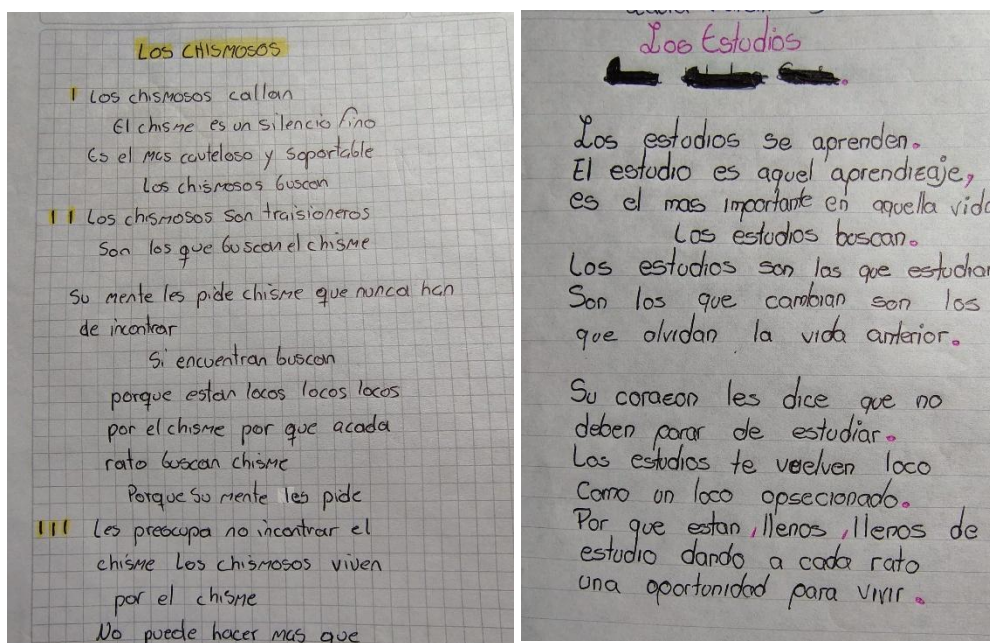 LOS CHISMOSOS
I Los chismosos callan
El chisme es un silencio fino
Es el mas cauteloso y soportable
Los chismosos buscan
II Los chismosos son traisioneros
Son los que buscan el chisme
Su mente les pide chisme que nunca han
de incontrar
Si encuentran buscan
porque estan locos locos locos
por el chisme por que acada
rato buscan chisme
Porque su mente les pide
III Les preocupa no incontrar el
chisme Los chismosos viven
por el chisme
No puede hacer mas que
Los Estudios
Los estudios se aprenden.
El estudio es aquel aprendizaje,
es el mas importante en aquella vida
Los estudios boscan.
Los estudios son las que estudian
Son los que cambian son los
que olvidan la vida anterior.
Su corazon les dice que no
deben parar de estudiar.
Los estudios te vuelven loco
Como un loco opsecionado.
Por que estan, llenos, llenos de
estudio dando a cada rato
una oportunidad para vivir.